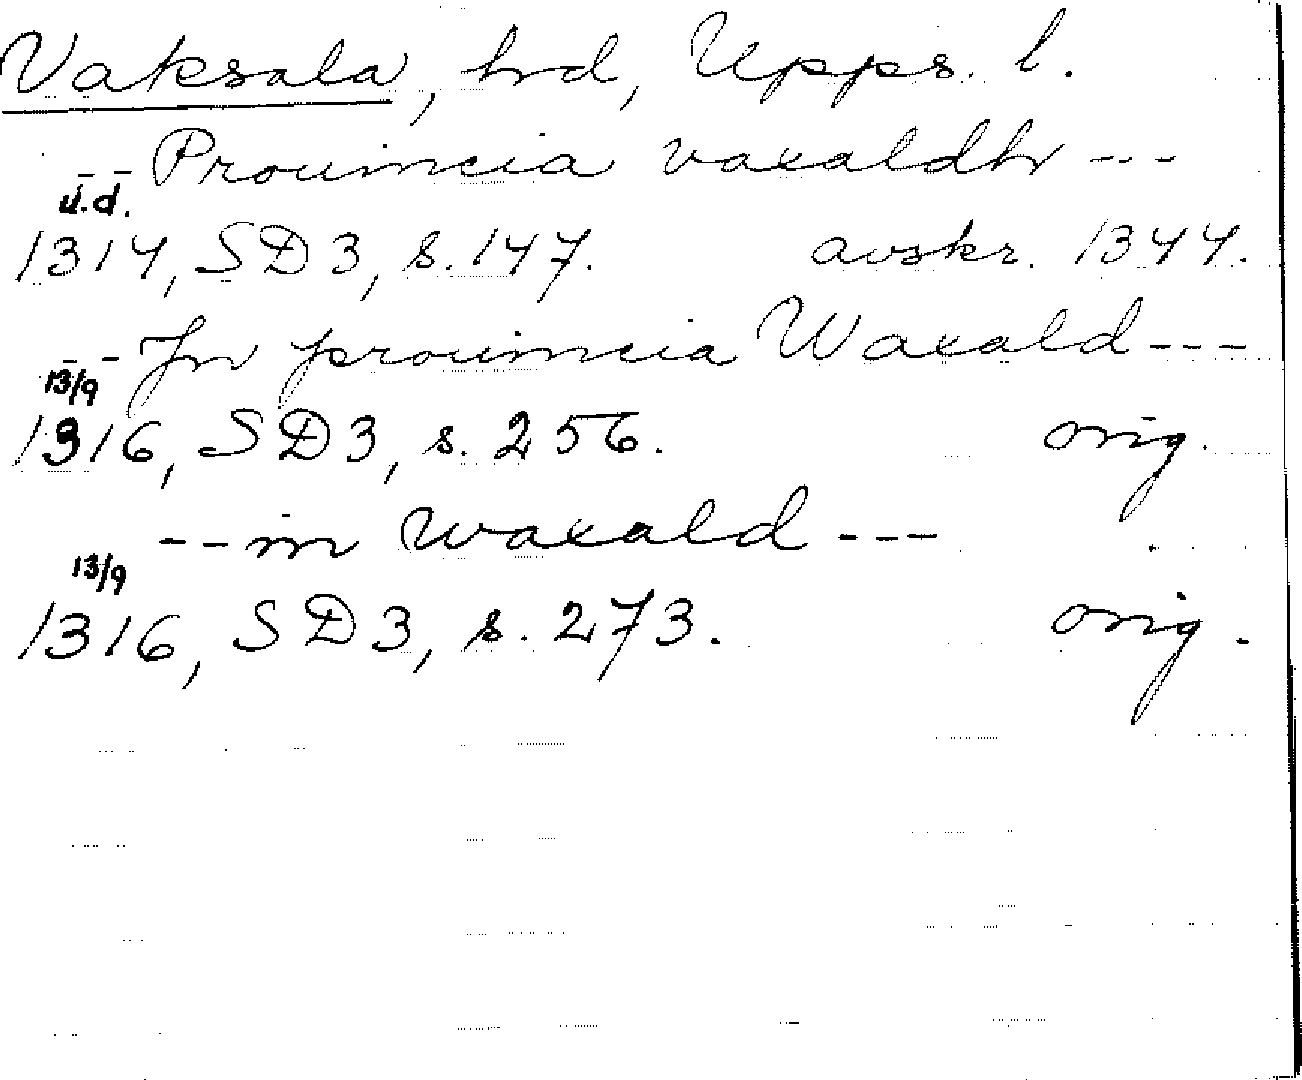 Vaksala, hrd, Upps. l.
--Prouincia vaxaldhr---
u.d.
1314, SD3, s. 147. avskr. 1344.
--Jn prouincia Waxald---
13/9
1316, SD3, s. 256. orig.
--in Waxald---
13/9
1316, SD3, s. 273. orig.